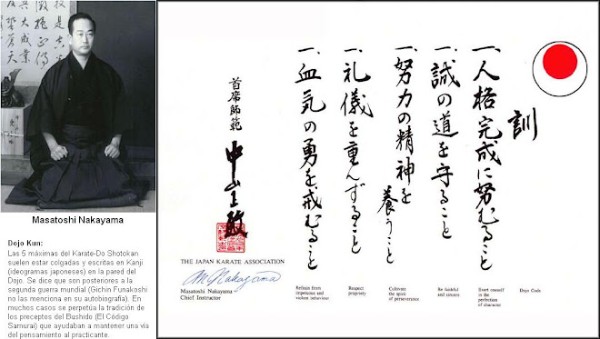 Masatoshi Nakayama
Dojo Kun:
Las 5 máximas del Karate-Do Shotokan
suelen estar colgadas y escritas en Kanji
(ideogramas japoneses) en la pared del
Dojo. Se dice que son posteriores a la
segunda guerra mundial (Gichin Funakoshi
no las menciona en su autobiografía). En
muchos casos se perpetúa la tradición de
los preceptos del Bushido (El Código
Samurai) que ayudaban a mantener una vía
del pensamiento al practicante.
訓
一、人格完成に努むること
一、誠の道を守ること
一、努力の精神を養うこと
一、礼儀を重んずること
一、血気の勇を戒むること
首席師範
中山正敏
THE JAPAN KARATE ASSOCIATION
M. Nakayama
Masatoshi Nakayama
Chief Instructor
Refrain from
impetuous and
violent behaviour
Respect
propriety
Cultivate
the spirit
of perseverance
Be faithful
and sincere
Exert oneself
in the
perfection
of character
Dojo Code